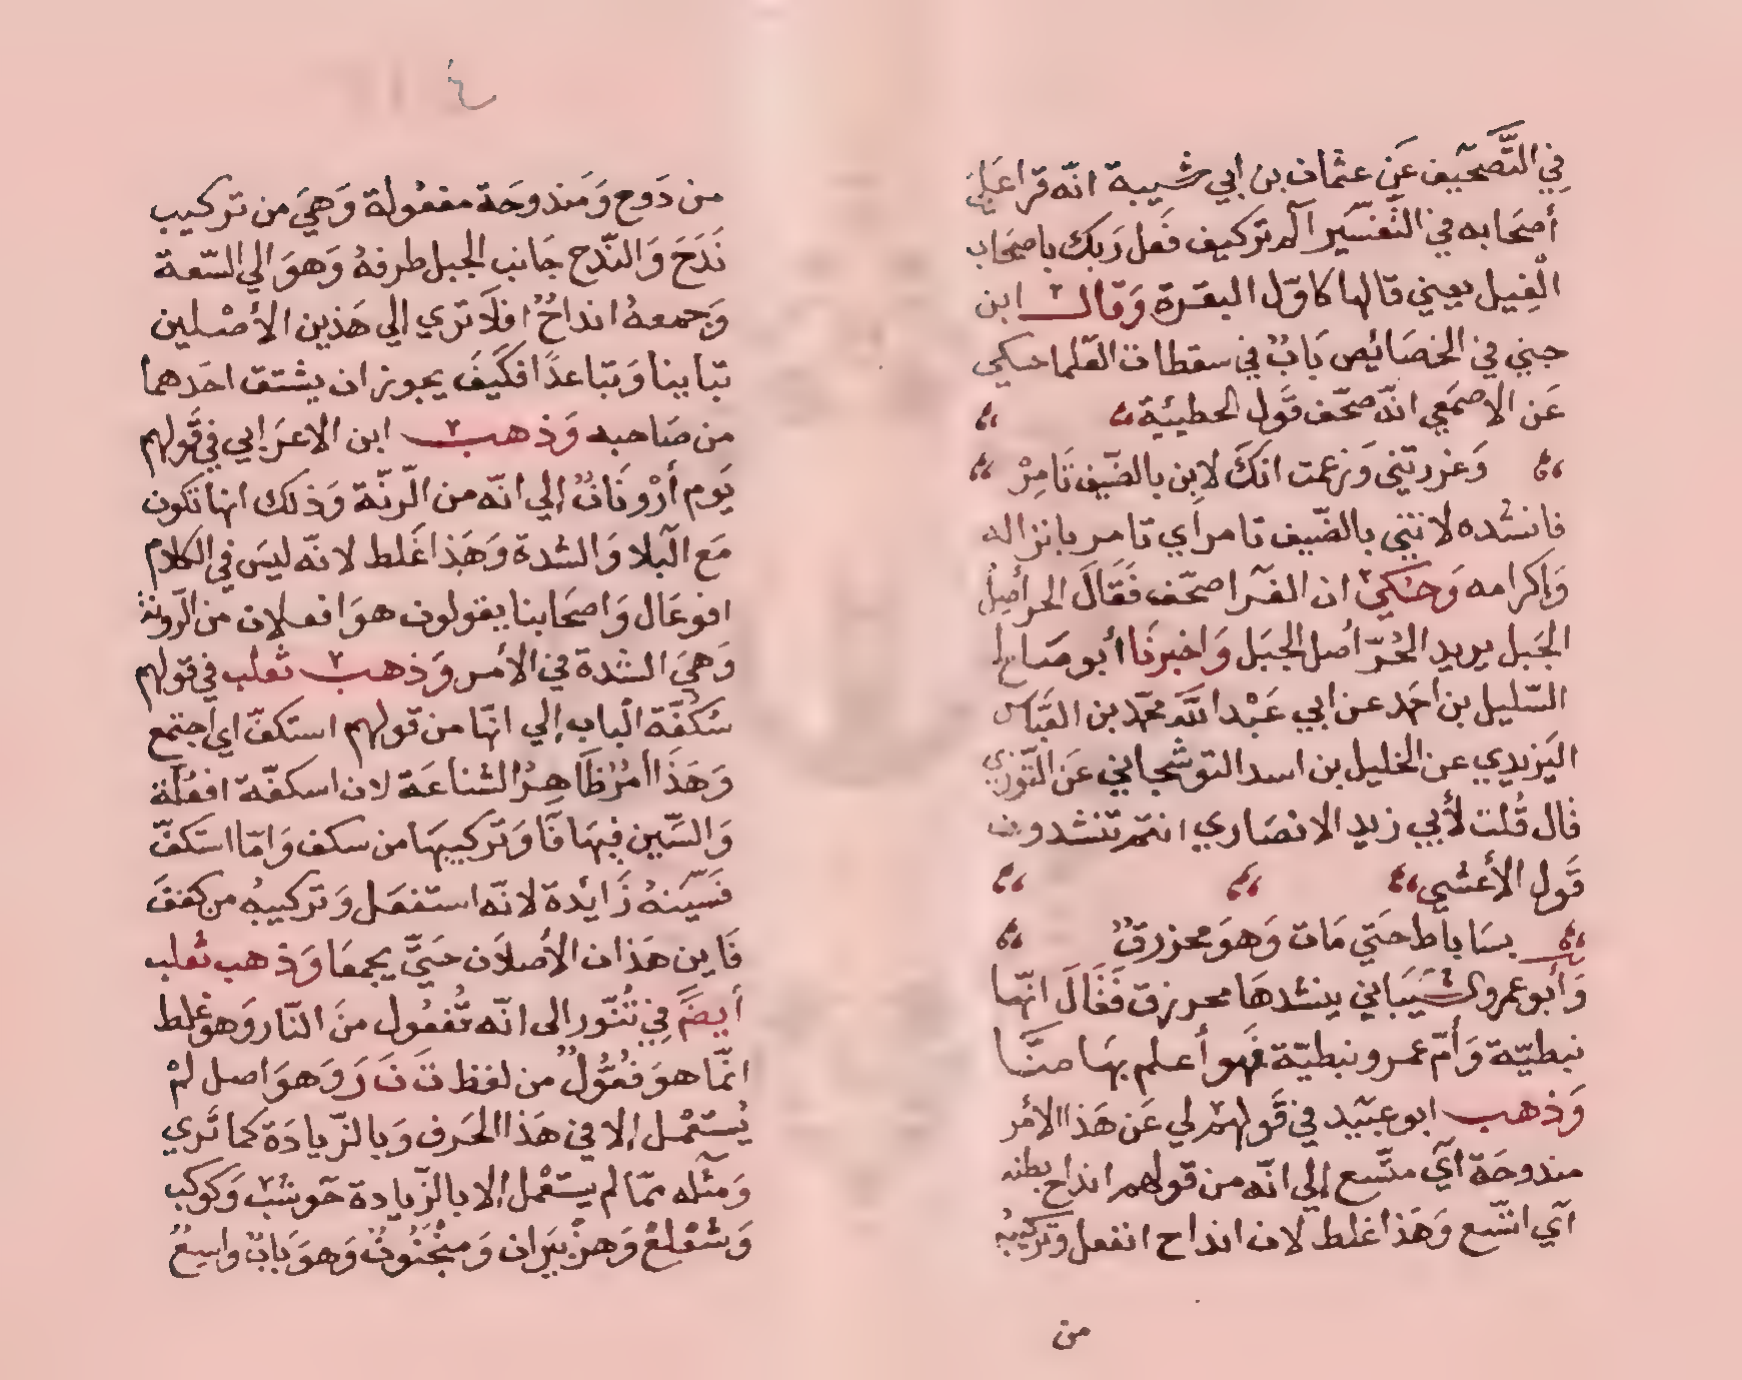 في التَّصحيف عَن عثمان بن ابي شيبة انّه قرا عَلى
أصحَابه في التّفسَير الم تركيف فَعل رَبك باصحَاب
الْفِيل يعيني قالها كاوّل البقرة وَقال ابن
جني في الخصَائِص بَابٌ في سقطات العَلما حكي
عَن الاصمَعي انّه صحّف قَول الحطيئة
وَغررتني وَزعمت انكَ لابن بالصّيف تَامِرْ
فانشده لا تني بالضّيف تامر اي تامر بانزاله
وَإكرامه وَحكي ان الفرا صحّف فَقَالَ الحر أصل
الجَبل يريد الحُرّ اصل الجبَل وَاخبرنَا أبو صَالح
السّليل بن احَمد عن ابي عَبْد اللَّه محمّد بن العَبّاس
اليَزيدي عن الخليل بن اسد التوشجاني عَن التّوزي
قال قُلت لأبي زيد الانصَاري انتم تنشدون
قَول الأعشي
بسَاباط حتَي مَات وَهوَ محزرقُ
وَأبو عمرو الشَيبَاني ينشدهَا محرزق فَقَالَ انّها
نبطيّة وَأمّ عمرو نبطيّة فَهو أعلم بهَا منَّا
وَذهب ابو عبَيد في قَولهم لي عَن هَذا الامر
مندوحَة اَي متّسع إلي انّه من قَولهم انداح بطنه
اَي اتّسع وَهَذا غلط لان انداح انفعل وَتركيبُه
من
من دَوح وَمَندوحَة مفعُولة وَهيَ من تركيب
نَدَحَ وَالنّدح جَانب الجبل طرفهُ وَهوَ الي السّعة
وَجمعهُ انداحٌ افلَا تري إلي هَذين الأصْلين
تبايينا وَتباعدًا فكَيفَ يجوز ان يشتق احَدهما
من صَاحبه وَذهب ابن الاعرَابي في قَولهم
يَوم أرْونَانٌ إلي انّه من الّرنّة وَذلك انها تكون
مَع الَبلا وَالشدة وَهَذا غَلط لانّه ليسَ في الكلام
افوعَال وَاصحَابنا يقولون هوَ افعلان من الّرونة
وَهيَ الشدة في الأمر وَذهب ثعلب في قولهم
سْكُفّة الْباب إلي انّها من قولهم استكفّ اي اجتمع
وَهَذَا امرٌ ظَاهِرُ الشناعَة لان اسكفّة افعُلّة
وَالسّين فيهَا فَا وَتركيبهَا من سكف وَامّا استكفّ
فسَينهُ زَايدة لانّه استفعَل وَتركيبهُ من كففَ
فَاين هَذان الأصلان حَتيَّ يجمعَا وَذهب ثعلب
أيضَا في تُنّور الى انّه تُفعُول منَ النّار وَهو غلط
انّما هوَ فعُّولٌ من لفظ تَ نَ رَ وَهوَ اصل لمْ
يُستعْمل إلا في هَذا الحَرف وَبالزّيادَة كما تَري
وَمثله ممّا لم يستعْمل إلا بالزّيادة حَوشب وَكَوكب
وَشعْلعْ وَهزْبيَران وَمنْجنُونٌ وَهوَ بَابٌ واسِعٌ